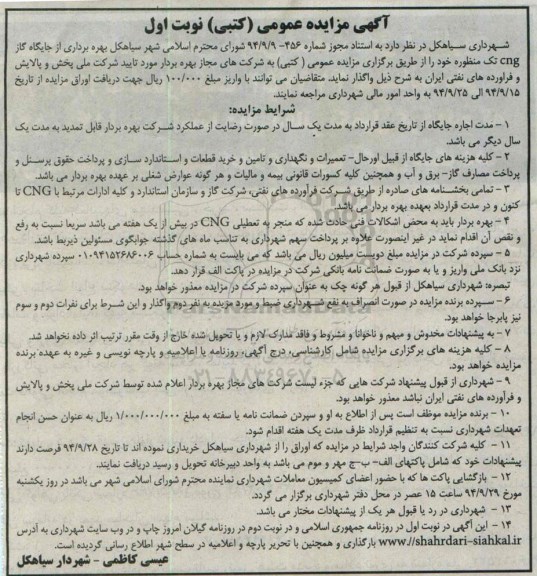 آگهی مزایده عمومی (کتبی) نوبت اول
شهرداری سیاهکل در نظر دارد به استناد مجوز شماره ۴۵۶- ۹۴/۹/۹ شورای محترم اسلامی شهر سیاهکل بهره برداری از جایگاه گاز
cng تک منظوره خود را از طریق برگزاری مزایده عمومی ( کتبی) به شرکت های مجاز بهره بردار مورد تایید شرکت ملی پخش و پالایش
و فراورده های نفتی ایران به شرح ذیل واگذار نماید. متقاضیان می توانند با واریز مبلغ ۱۰۰/۰۰۰ ریال جهت دریافت اوراق مزایده از تاریخ
۹۴/۹/۱۵ الی ۹۴/۹/۲۵ به واحد امور مالی شهرداری مراجعه نمایند.
شرایط مزایده:
۱ – مدت اجاره جایگاه از تاریخ عقد قرارداد به مدت یک سال در صورت رضایت از عملکرد شرکت بهره بردار قابل تمدید به مدت یک
سال دیگر می باشد.
۲ – کلیه هزینه های جایگاه از قبیل اورحال- تعمیرات و نگهداری و تامین و خرید قطعات و استاندارد سازی و پرداخت حقوق پرسنل و
پرداخت مصارف گاز- برق و آب و همچنین کلیه کسورات قانونی بیمه و مالیات و هر گونه عوارض شغلی بر عهده بهره بردار می باشد.
۳ – تمامی بخشنامه های صادره از طریق شرکت فرآورده های نفتی، شرکت گاز و سازمان استاندارد و کلیه ادارات مرتبط با CNG تا
کنون و در مدت قرارداد بعهده بهره بردار می باشد.
۴ – بهره بردار باید به محض اشکالات فنی حادث شده که منجر به تعطیلی CNG در بیش از یک هفته می باشد سریعا نسبت به رفع
و نقص آن اقدام نماید در غیر اینصورت علاوه بر پرداخت سهم شهرداری به تناسب ماه های گذشته جوابگوی مسئولین ذیربط باشد.
۵ – سپرده شرکت در مزایده مبلغ دویست میلیون ریال می باشد که می بایست به شماره حساب ۰۱۰۹۴۱۵۲۶۸۶۰۰۶ سپرده شهرداری
نزد بانک ملی واریز و یا به صورت ضمانت نامه بانکی شرکت در مزایده در پاکت الف قرار دهد.
تبصره: شهرداری سیاهکل از قبول هر گونه چک به عنوان سپرده شرکت در مزایده معذور خواهد بود.
۶ – سپرده برنده مزایده در صورت انصراف به نفع شهرداری ضبط و مورد مزیده به نفر دوم واگذار و این شرط برای نفرات دوم و سوم
نیز پابرجا خواهد بود.
۷ – به پیشنهادات مخدوش و مبهم و ناخوانا و مشروط و فاقد مدارک لازم و یا تحویل شده خارج از وقت مقرر ترتیب اثر داده نخواهد شد.
۸ – کلیه هزینه های برگزاری مزایده شامل کارشناسی، درج آگهی، روزنامه یا اعلامیه و پارچه نویسی و غیره به عهده برنده
مزایده خواهد بود.
۹ – شهرداری از قبول پیشنهاد شرکت هایی که جزء لیست شرکت های مجاز بهره بردار اعلام شده توسط شرکت ملی پخش و پالایش
و فرآورده های نفتی ایران نباشد معذور خواهد بود.
۱۰ – برنده مزایده موظف است پس از اطلاع به او و سپردن ضمانت نامه یا سفته به مبلغ ۱/۰۰۰/۰۰۰/۰۰۰ ریال به عنوان حسن انجام
تعهدات شهرداری نسبت به تنظیم قرارداد ظرف مدت یک هفته اقدام شود.
۱۱ – کلیه شرکت کنندگان واجد شرایط در مزایده که اوراق را از شهرداری سیاهکل خریداری نموده اند تا تاریخ ۹۴/۹/۲۸ فرصت دارند
پیشنهادات خود که شامل پاکتهای الف- ب-ج مهر و موم می باشد به واحد دبیرخانه تحویل و رسید دریافت نمایند.
۱۲ – بازگشایی پاکت ها که با حضور اعضای کمیسیون معاملات شهرداری نماینده محترم شورای اسلامی شهر می باشد در روز یکشنبه
مورخ ۹۴/۹/۲۹ ساعت ۱۵ عصر در محل دفتر شهرداری برگزار می گردد.
۱۳ – شهرداری در رد یا قبول هر یک از پیشنهادات مختار می باشد.
۱۴ – این آگهی در نوبت اول در روزنامه جمهوری اسلامی و در نوبت دوم در روزنامه گیلان امروز چاپ و در وب سایت شهرداری به آدرس
www.//shahrdari-siahkal.ir بارگذاری و همچنین با تحریر پارچه و اعلامیه در سطح شهر اطلاع رسانی گردیده است.
عیسی کاظمی – شهردار سیاهکل